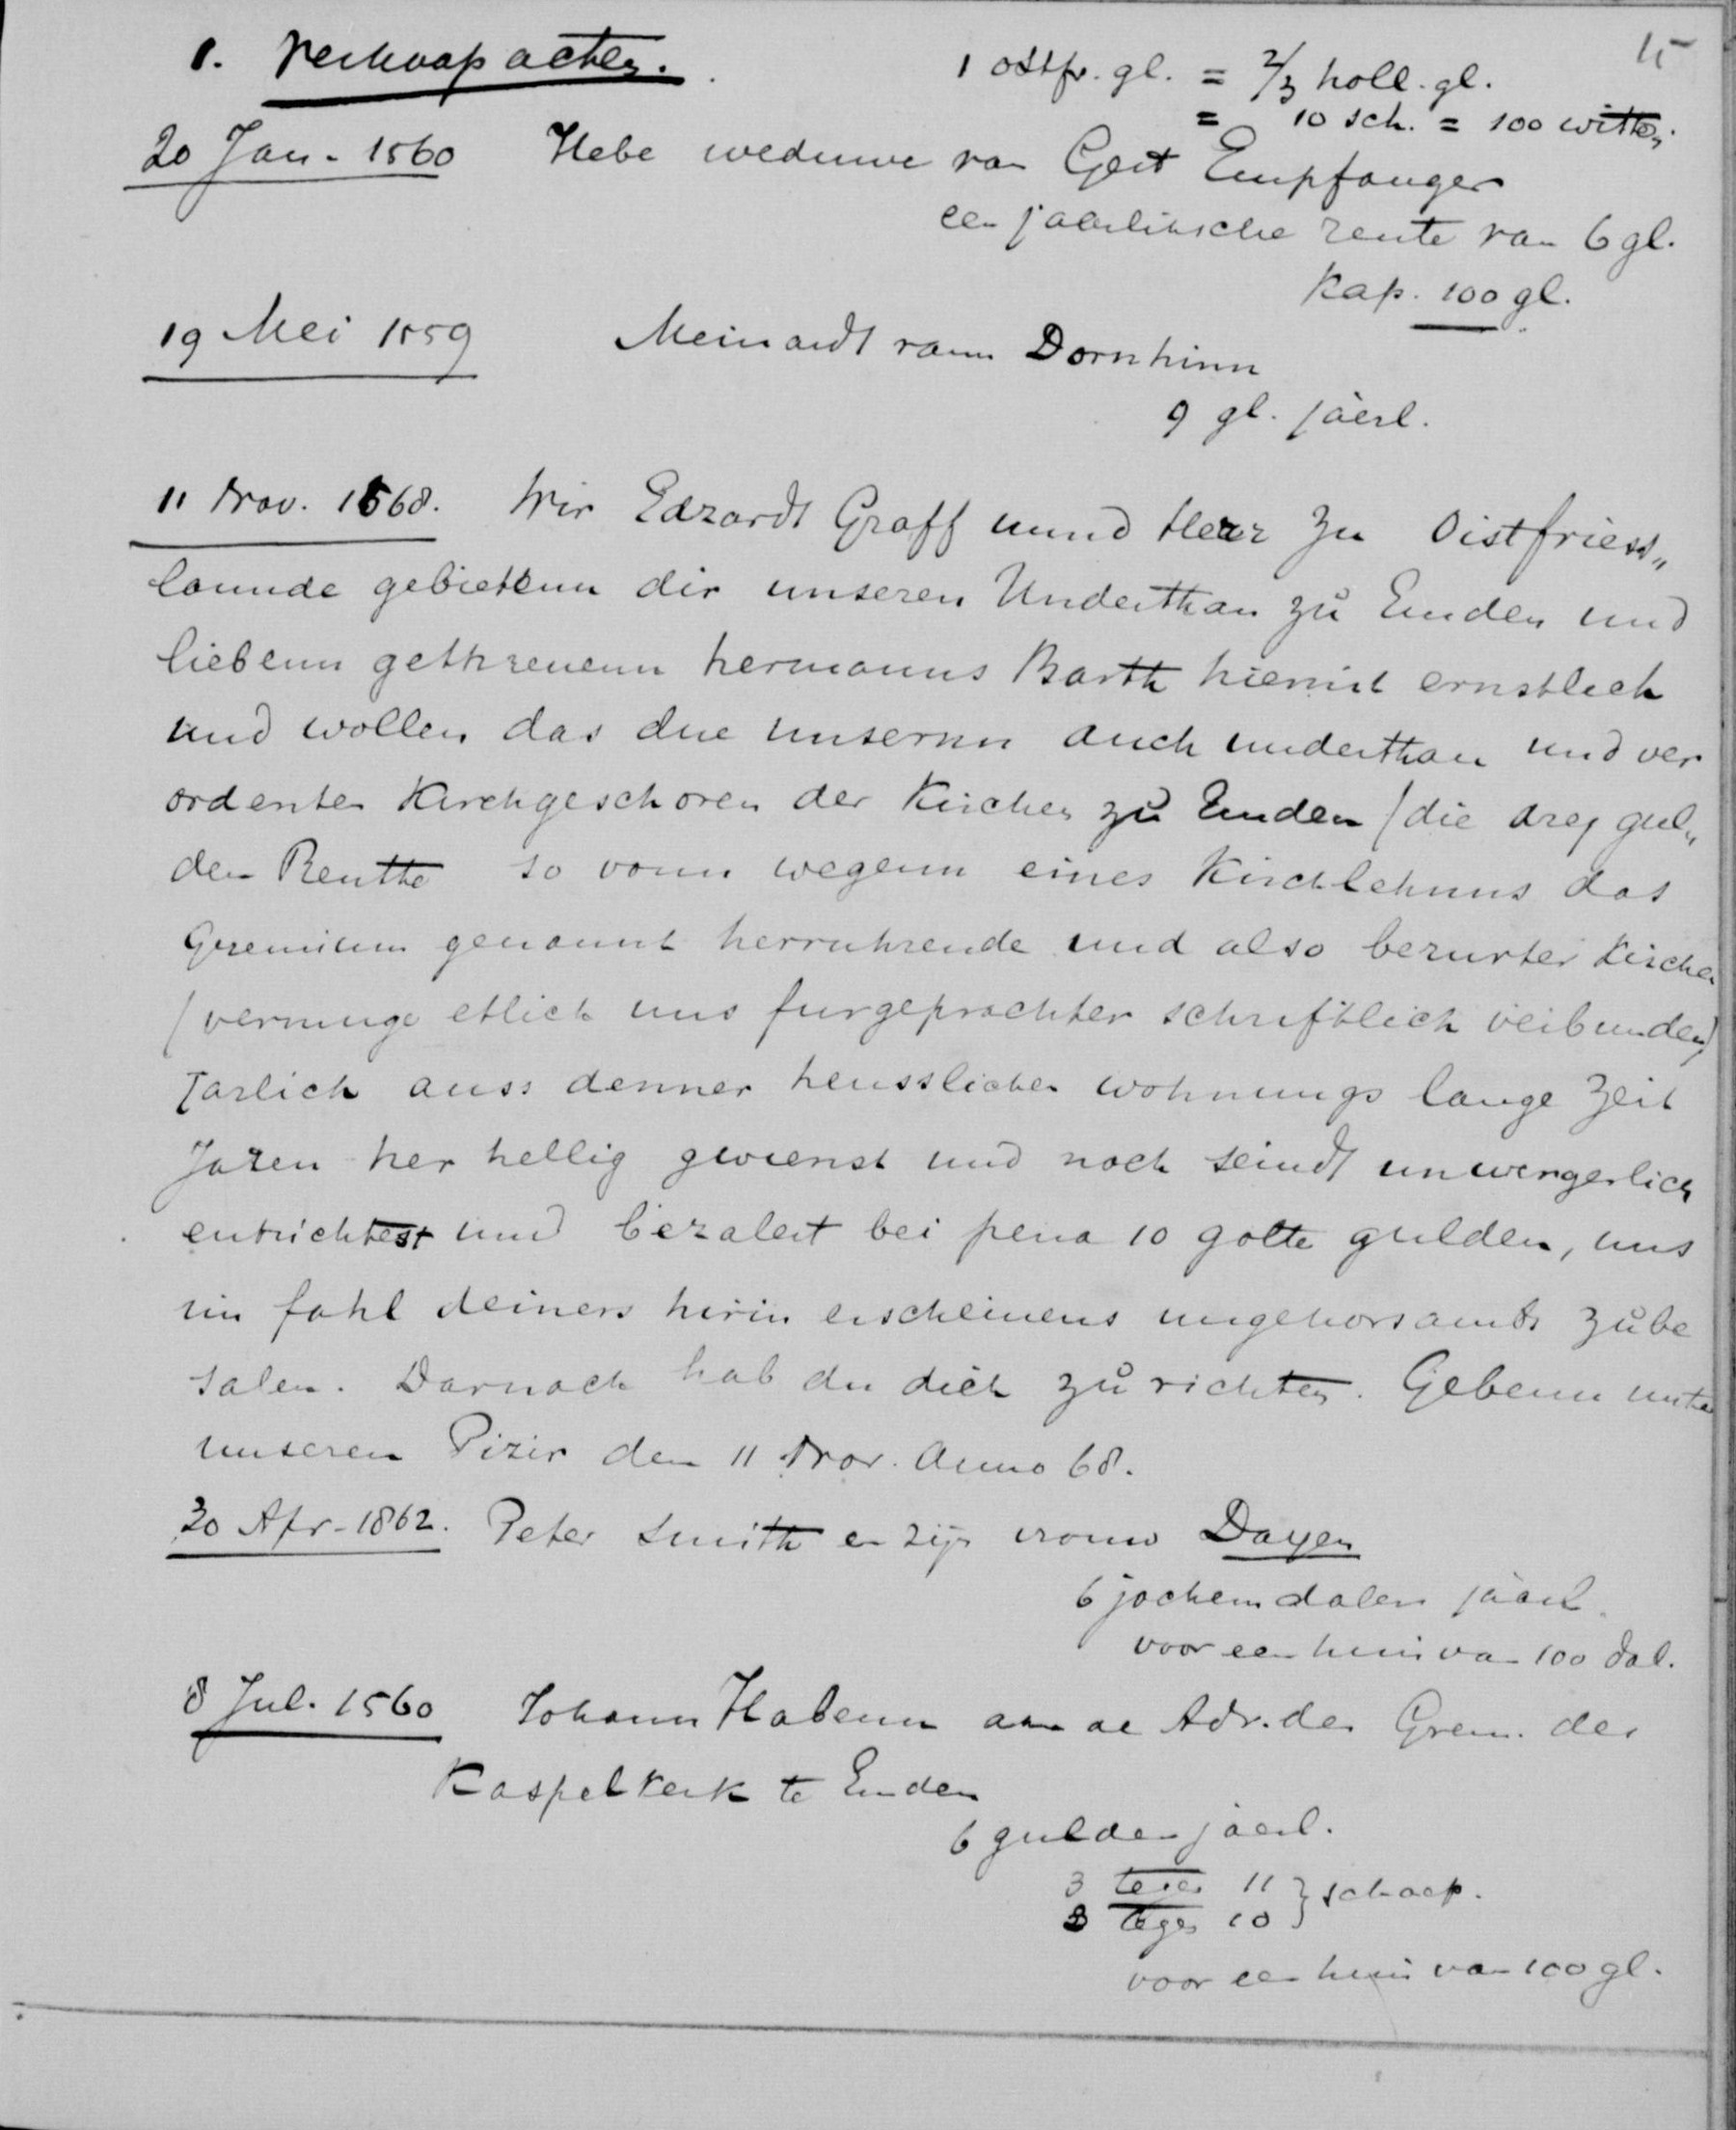 15
1. Verkoop acten.
1 ostfr. gl. = 2/3 holl. gl.
= 10 sch. = 100 witten.
20 Jan. 1560 Hebe weduwe van Gert Empfanger
een jaarliksche rente van 6 gl.
Kap. 100 gl.
19 Mei 1559 Meinardt vann Dornhinn
9 gl. jaerl.
11 Nov. 1568. Wir Edzardt Graff unnd Herr zu Oistfriess„
lannde gebiettenn dir unseren Underthan zů Emden und
liebenn gethreuenn hermanns Barth hiemit ernstlich
und wollen das due unsernn auch underthan und ver
ordenten Kirchgeschoren der Kirchen zů Emden (die drej gul„
den Rentte so vonn wegenn eines Kirchlehnns das
Gremium genannt herruhrende und also berurter Kirchen
(vermuge etlich uns furgeprachter schriftlich verbunden)
Jarlich auss denner heusslicher wohnungs lange Zeit
Jaren her hellig gewenst und noch seindt unwergerlich
entrichtest und bezalest bei pena 10 golte gulden, uns
im fahl deiners hirin erscheinens ungehorsambs zůbe
salen. Darnach hab du dich zů richten. Gebenn unter
unseren Pizir den 11 Nov. Anno 68.
30 Apr. 1862. Peter Smith en zijn vrouw Dayen
6 jochem dalen jaarl.
voor een huis van 100 dal.
8 Jul. 1560 Johann Habenn aan de Adv. der Grem. der
Kaspelkerk te Emden
6 gulden jaerl.
3 11 } schaep.
3 tegen 10
voor een huis van 100 gl.